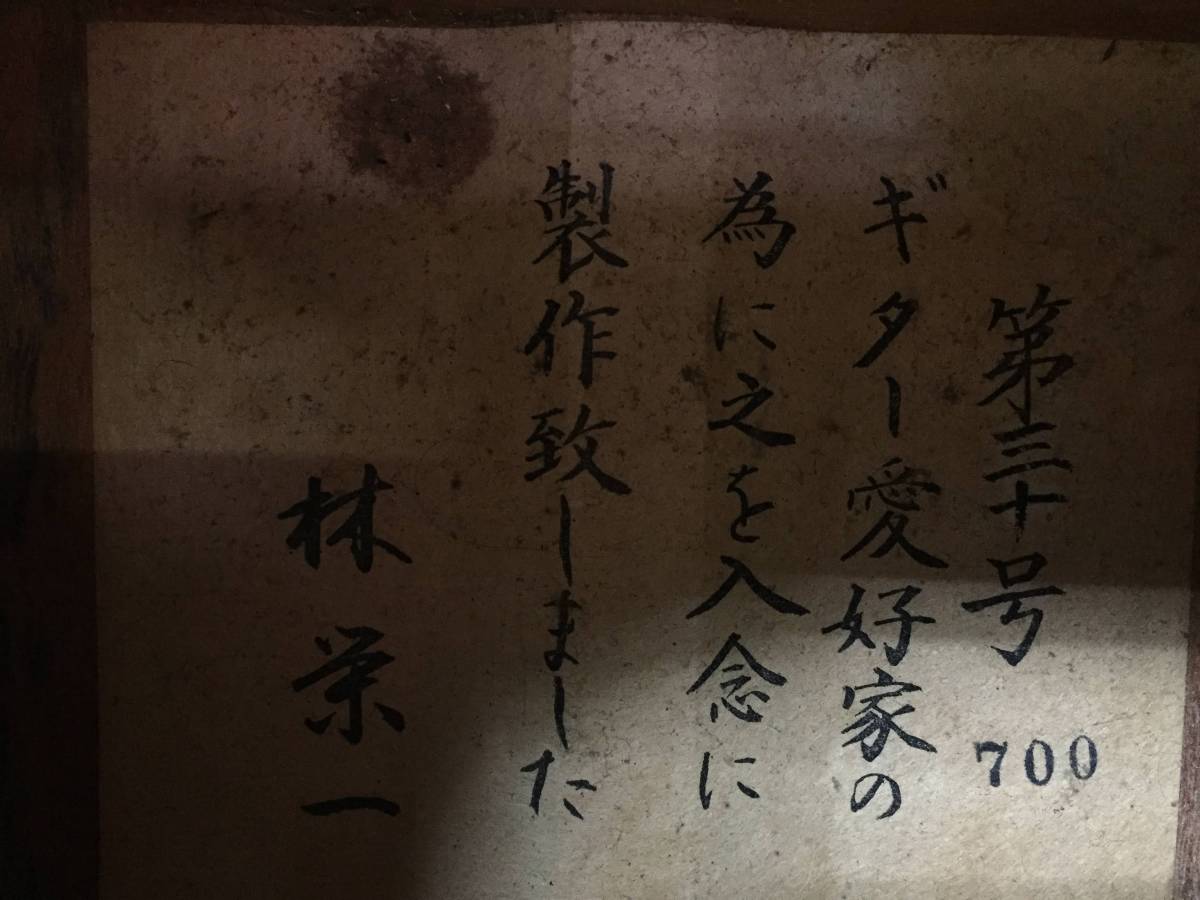 第三十号 700
ギター愛好家の
為に之を入念に
製作致しました
林栄一